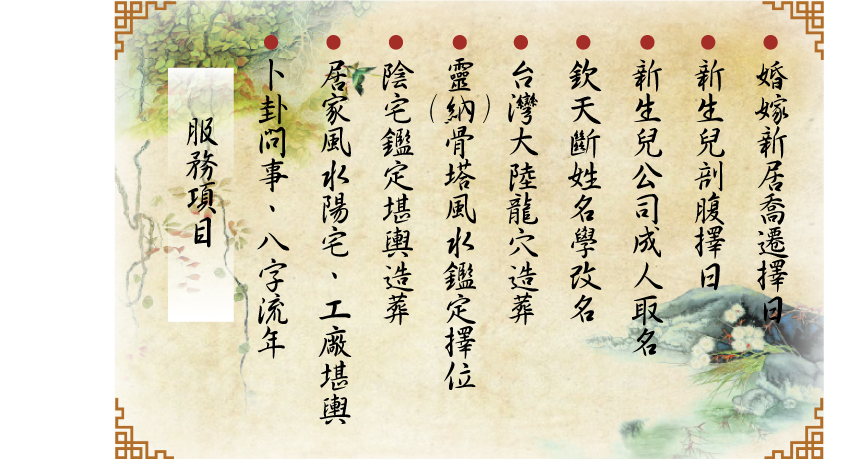 服務項目
卜卦問事、八字流年
居家風水陽宅、工廠堪輿
陰宅鑑定堪輿造葬
靈(納)骨塔風水鑑定擇位
台灣大陸龍穴造葬
欽天斷姓名學改名
新生兒公司成人取名
新生兒剖腹擇日
婚嫁新居喬遷擇日